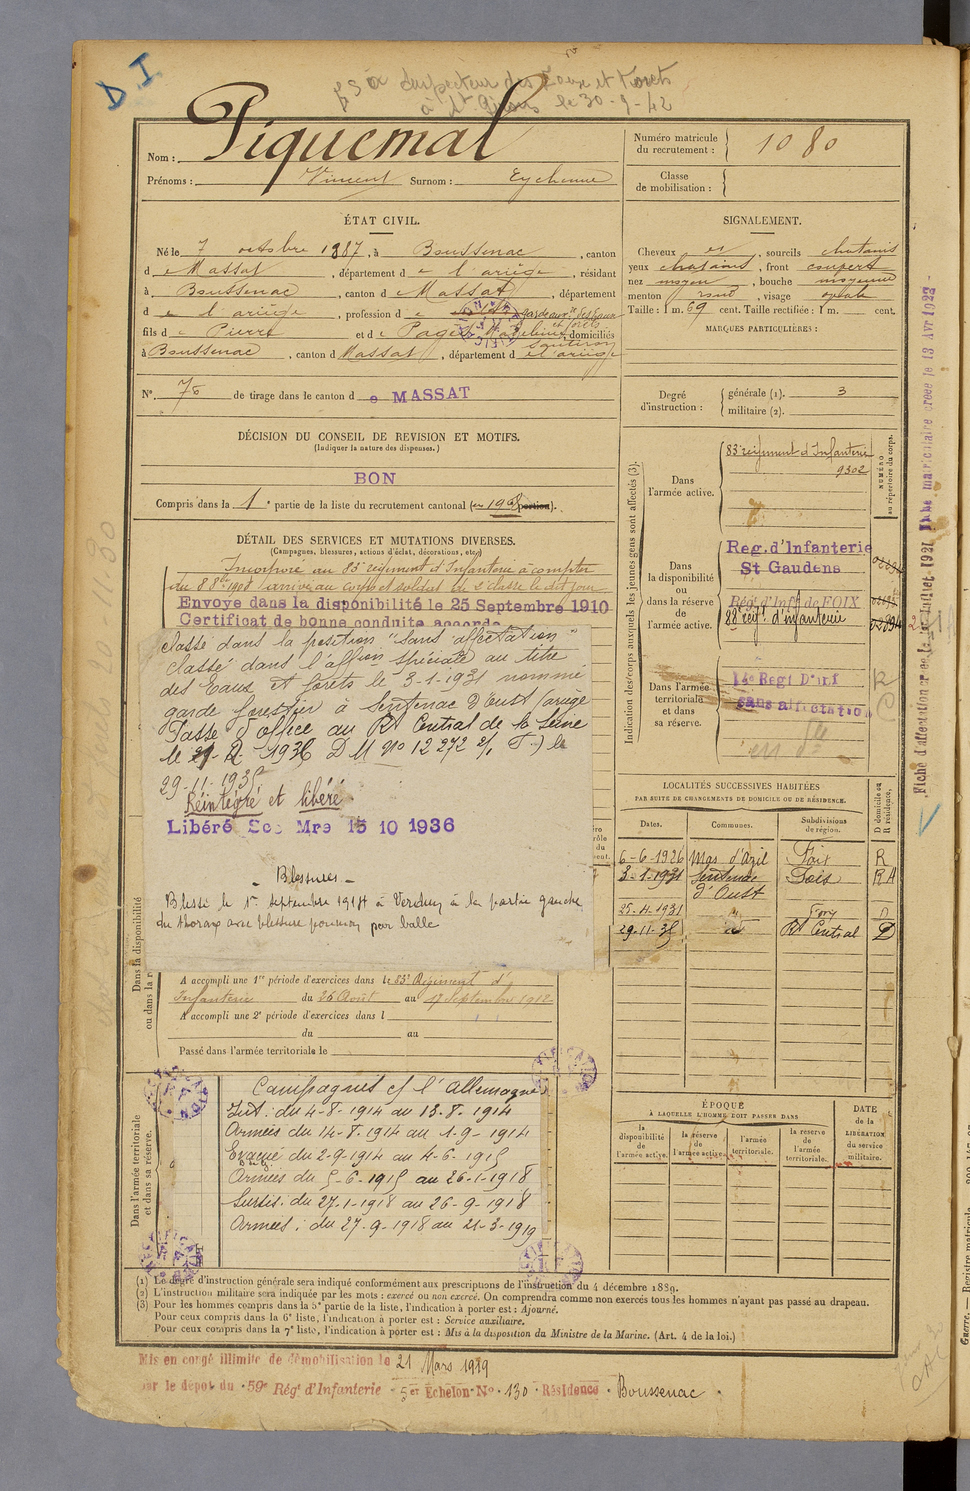 D I
Inspecteur des Eaux et Forêts
à St Girons le 30-9-42
Nom : Piquemal
Prénoms : Vincent Surnom : Eychenne
Numéro matricule du recrutement : 1080
Classe de mobilisation :
ÉTAT CIVIL.
Né le 7 octobre 1887, à Boussenac, canton
d e Massat, département d e l'ariège, résidant
à Boussenac, canton d e Massat, département
d e l'ariège, profession d e garde des Eaux et forêts
fils d e Pierre et d e Pagès, domiciliés
à Boussenac, canton d Massat, département d e l'ariège
SIGNALEMENT.
Cheveux et, sourcils chatains
yeux chatains, front couvert
nez moyen, bouche moyenne
menton rond, visage ovale
Taille : 1 m. 69 cent. Taille rectifiée : 1 m. cent.
MARQUES PARTICULIÈRES :
N° 76 de tirage dans le canton d e MASSAT
Degré d'instruction : générale (1). 3
militaire (2).
DÉCISION DU CONSEIL DE REVISION ET MOTIFS.
(Indiquer la nature des dispenses.)
BON
Compris dans la 1e partie de la liste du recrutement cantonal (en 1908 portion).
DÉTAIL DES SERVICES ET MUTATIONS DIVERSES.
(Campagnes, blessures, actions d'éclat, décorations, etc.)
Incorporé au 83e régiment d'Infanterie à compter
du 8 8bre 1908 arrivé au corps et soldat de 2e classe le dit jour
Envoye dans la disponibilité le 25 Septembre 1910
Certificat de bonne conduite accordé
classé dans la position "sans affectation"
classé dans l'affion spéciale au titre
des Eaux et forêts le 3-1-1931 nommé
garde forestier à Sentenac d'Oust (ariège
Passé d'office au Rt Central de la Seine
le 21-2-1936 D M n° 12272
29-11-1935
Réintégré et libéré
Libéré Sce Mre 15 10 1936
- Blessures -
Blessé le 1er Septembre 1914 à Verdun à la partie gauche
du thorax avec blessure poumon par balle
A accompli une 1re période d'exercices dans le 83e Régiment d'
Infanterie du 26 Août au 17 Septembre 1912
A accompli une 2e période d'exercices dans l
du au
Passé dans l'armée territoriale le
Campagnes cf l'allemagne
Int : du 4-8-1914 au 13-8-1914
Armées du 14-8-1914 au 1-9-1914
Evacué du 2-9-1914 au 4-6-1915
Armées du 5-6-1915 au 26-1-1918
Sursis : du 27-1-1918 au 26-9-1918
Armées : du 27-9-1918 au 21-3-1919
Dans la disponibilité
ou dans la r
Dans l'armée territoriale
et dans sa réserve.
Indication des corps auxquels les jeunes gens sont affectés (3).
NUMÉRO
au répertoire du corps.
Dans l'armée active.
83e régiment d'Infanterie
9302
Dans la disponibilité ou dans la réserve de l'armée active.
Reg. d'Infanterie
St Gaudens
Régt d'Inf de FOIX
88e régt d'infanterie
Dans l'armée territoriale et dans sa réserve.
14e Regt D'inf
sans affectation
LOCALITÉS SUCCESSIVES HABITÉES
PAR SUITE DE CHANGEMENTS DE DOMICILE OU DE RÉSIDENCE.
Dates. Communes. Subdivisions de région. D domicile ou R résidence.
6-6-1926 Mas d'Azil Foix R
3-1-1931 Sentenac d'Oust Foix R A
25-4-1931 d° Foix D
29-11-35 d° Rt Central D
ÉPOQUE
À LAQUELLE L'HOMME DOIT PASSER DANS
la disponibilité de l'armée active.
la réserve de l'armée active.
l'armée territoriale.
la réserve de l'armée territoriale.
DATE de la LIBÉRATION du service militaire.
(1) Le degré d'instruction générale sera indiqué conformément aux prescriptions de l'instruction du 4 décembre 1889.
(2) L'instruction militaire sera indiquée par les mots : exercé ou non exercé. On comprendra comme non exercés tous les hommes n'ayant pas passé au drapeau.
(3) Pour les hommes compris dans la 5e partie de la liste, l'indication à porter est : Ajourné.
Pour ceux compris dans la 6e liste, l'indication à porter est : Service auxiliaire.
Pour ceux compris dans la 7e liste, l'indication à porter est : Mis à la disposition du Ministre de la Marine. (Art. 4 de la loi.)
Mis en congé illimité de démobilisation le 21 Mars 1919
par le dépôt du 59e Régt d'Infanterie 5er Echelon N° 130 Résidence Boussenac
Fiche matriculaire créée le 13 Avr 1922